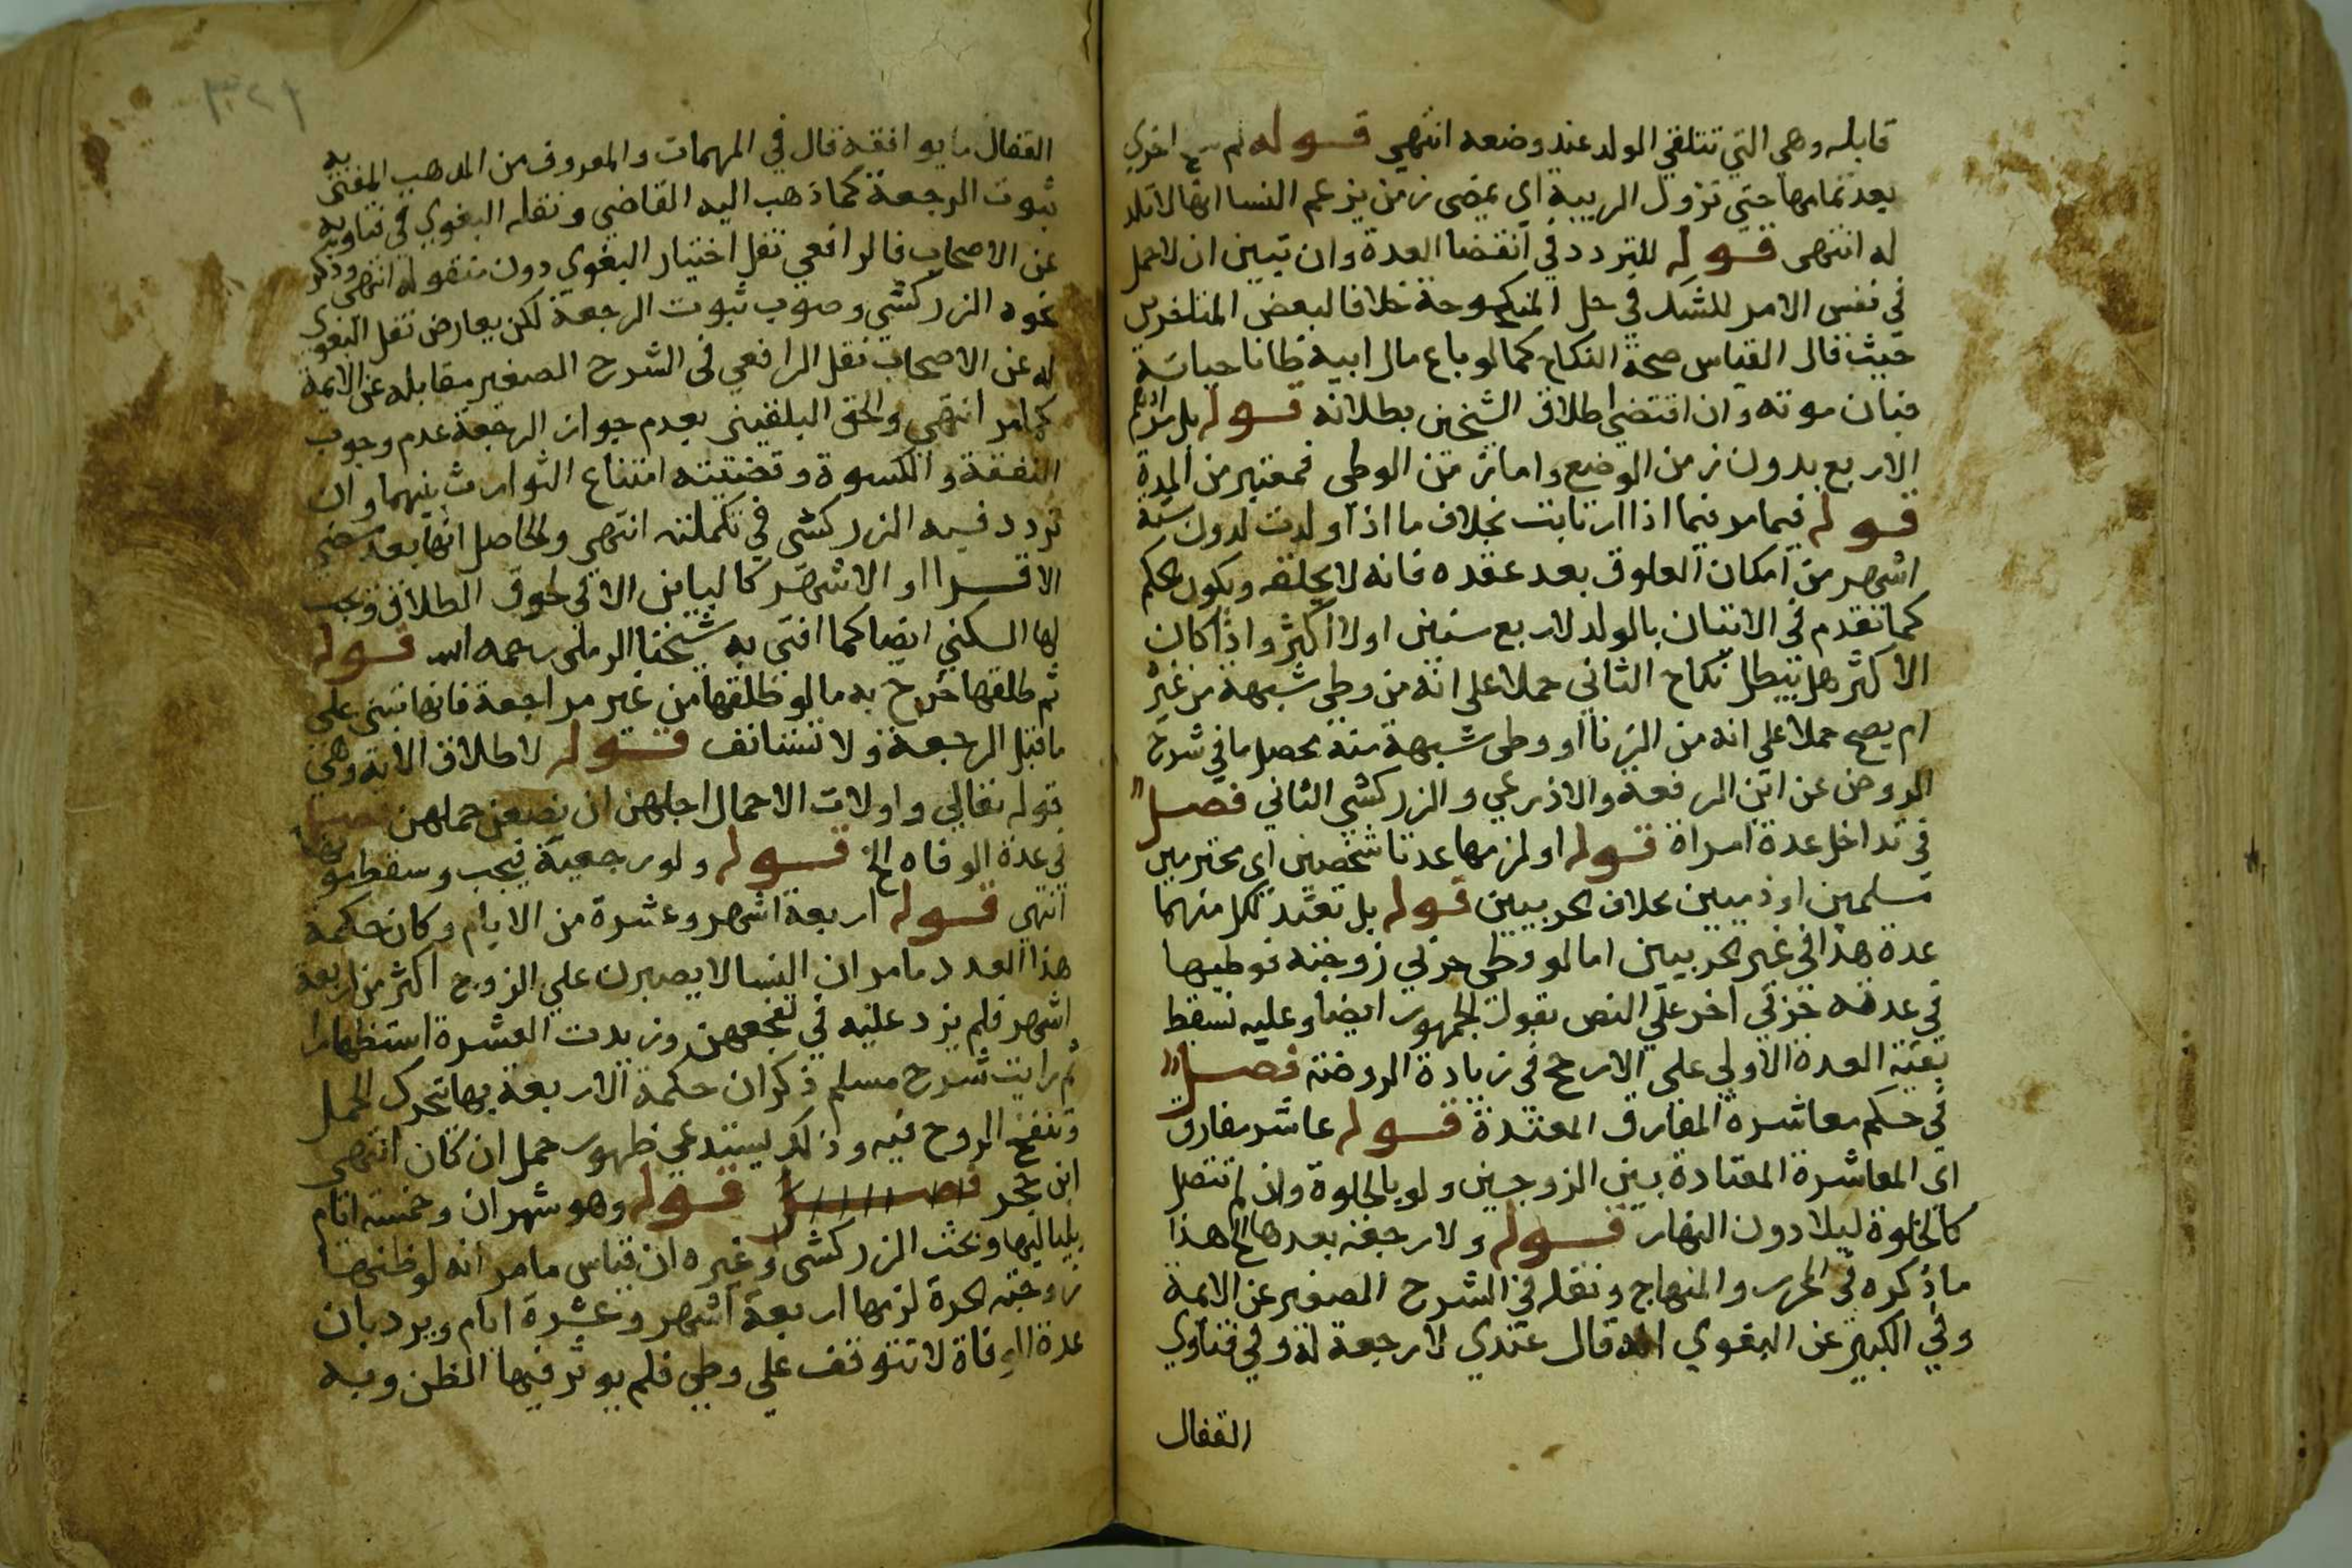 قابله وهي التي تتلقي الولد عند وضعه انتهي قوله لم اخري
بعد تمامها حتي تزول الريبة اي بمضى زمن يزعم النسا انها لا تلد
له انتهى قوله للتردد في انقضا العدة وان تبين ان لا حمل
في نفس الامر للشك في حل المنكوحة خلافا لبعض المتاخرين
حيث قال القياس صحة النكاح كما لو باع مال ابيه ظانا حياته
فبان موته وان اقتضى اطلاق الشيخين بطلانه قوله بل مرادهم
الاربع بدون زمن الوضع واما زمن الوطى فمعتبر من المدة
قوله فيما مر فيما اذا ارتابت بخلاف ما اذا ولدت لدون ستة
اشهر من امكان العلوق بعد عقده فانه لا يلحقه ويكون الحكم
كما تقدم في الاتيان بالولد لاربع سنين او لا اكثر واذا كان
الاكثر هل يبطل نكاح الثاني حملا على انه من وطى شبهة من غيره
ام يصح حملا على انه من الزنا او وطى شبهة منه محصل ما في شرح
الروض عن ابن الرفعة والاذرعي والزركشى الثاني فصل
في تداخل عدة امراة قوله او لزمها عدتا شخصين اى محترمين
مسلمين او ذميين بخلاف الحربيين قوله بل تعتد لكل منهما
عدة هذا في غير الحربيين اما لو وطى حربي زوجته فوطيها
في عدته حربي اخر على النص بقول الجمهور ايضا وعليه تسقط
بقية العدة الاولي على الارجح في زيادة الروضة فصل
في حكم معاشرة المفارق المعتدة قوله عاشر مفارق
اى المعاشرة المعتادة بين الزوجين ولو بالخلوة وان لم تتصل
كالخلوة ليلا دون النهار قوله ولا رجعة بعدها الخ هذا
ما ذكره في المحرر والمنهاج ونقله في الشرح الصغير عن الايمة
وفي الكبير عن البغوي انه قال عندي لا رجعة له وفي فتاوي
القفال
٣٢١
القفال ما يوافقه قال في المهمات والمعروف من المذهب المفتى به
ثبوت الرجعة كما ذهب اليه القاضي ونقله البغوي في فتاويه
عن الاصحاب فالرافعي نقل اختيار البغوي دون منقوله انتهى وذكر
نحوه الزركشي وصوب ثبوت الرجعة لكن يعارض نقل البغوي
له عن الاصحاب نقل الرافعي في الشرح الصغير مقابله عن الايمة
كما مر انتهي والحق البلقيني بعدم جواز الرجعة عدم وجوب
النفقة والكسوة وقضيته امتناع التوارث بينهما وان
تردد فيه الزركشى في تكملته انتهى والحاصل انها بعد مضي
الاقرا او الاشهر كالباين الا في لحوق الطلاق وتجب
لها السكني ايضا كما افتى به شيخنا الرملى رحمه الله قوله
ثم طلقها خرج به ما لو طلقها من غير مراجعة فانها تبنى على
ما قبل الرجعة ولا تستانف قوله لاطلاق الاية وهي
قوله تعالي واولات الاحمال اجلهن ان يضعن حملهن فصل
في عدة الوفاه الخ قوله ولو رجعية فيجب وسقط
انتهي قوله اربعة اشهر وعشرة من الايام وكان حكمة
هذا العدد ما مر ان النسا لا يصبرن علي الزوج اكثر من اربعة
اشهر فلم يزد عليه في تفجعهن وزيدت العشرة استظهارا
ثم رايت شرح مسلم ذكر ان حكمة الاربعة بها تحرك الحمل
وتنفخ الروح فيه وذلك يستدعي ظهور حمل ان كان انتهى
ابن حجر فصل قوله وهو شهران وخمسة ايام
بلياليها وبحث الزركشى وغيره ان قياس ما مر انه لو ظنها
زوجته الحرة لزمها اربعة اشهر وعشرة ايام ويرد بان
عدة الوفاة لا تتوقف علي وطي فلم يوثر فيها الظن وبه